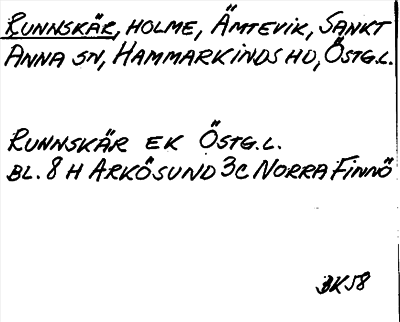 RUNNSKÄR, HOLME, ÄMTEVIK, SANKT
ANNA SN, HAMMARKINDS HD, ÖSTG.L.
RUNNSKÄR EK ÖSTG.L.
BL. 8 H ARKÖSUND 3C NORRA FINNÖ
BK58